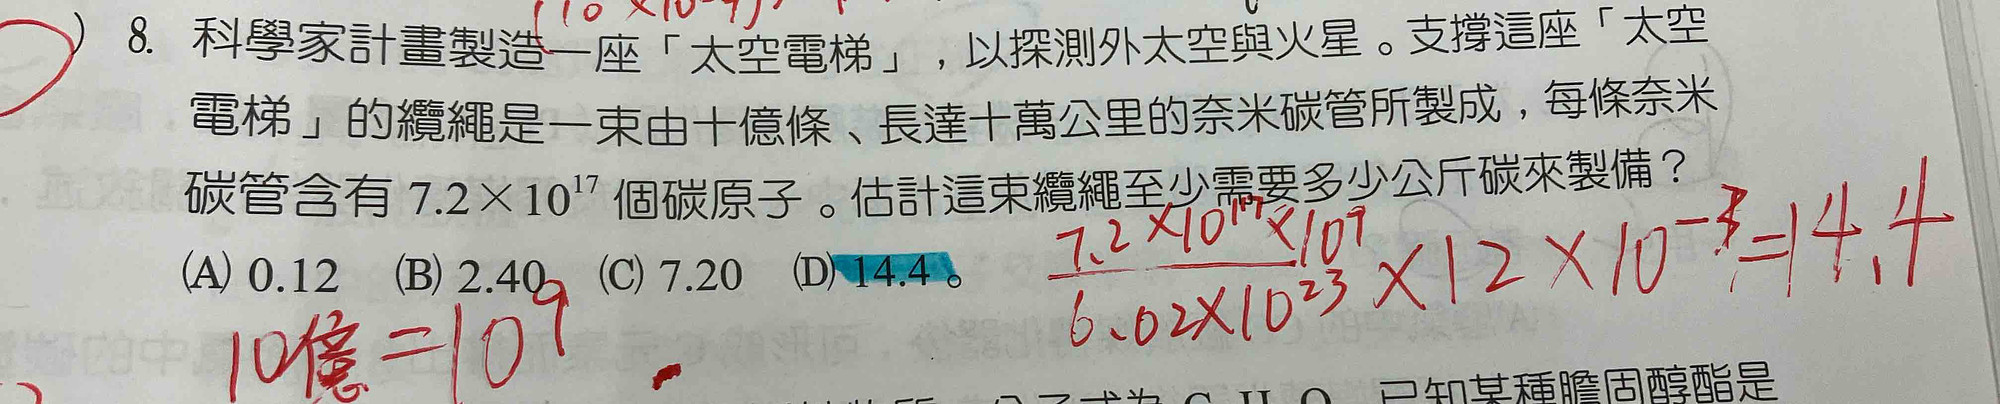 8. 科學家計畫製造一座「太空電梯」，以探測外太空與火星。支撐這座「太空
電梯」的纜繩是一束由十億條、長達十萬公里的奈米碳管所製成，每條奈米
碳管含有 7.2×10¹⁷ 個碳原子。估計這束纜繩至少需要多少公斤碳來製備？
(A) 0.12 (B) 2.40 (C) 7.20 (D) 14.4。
7.2×10¹⁷×10⁹ / 6.02×10²³ ×12×10⁻³=14.4
10億=10⁹
已知某種膽固醇酯是